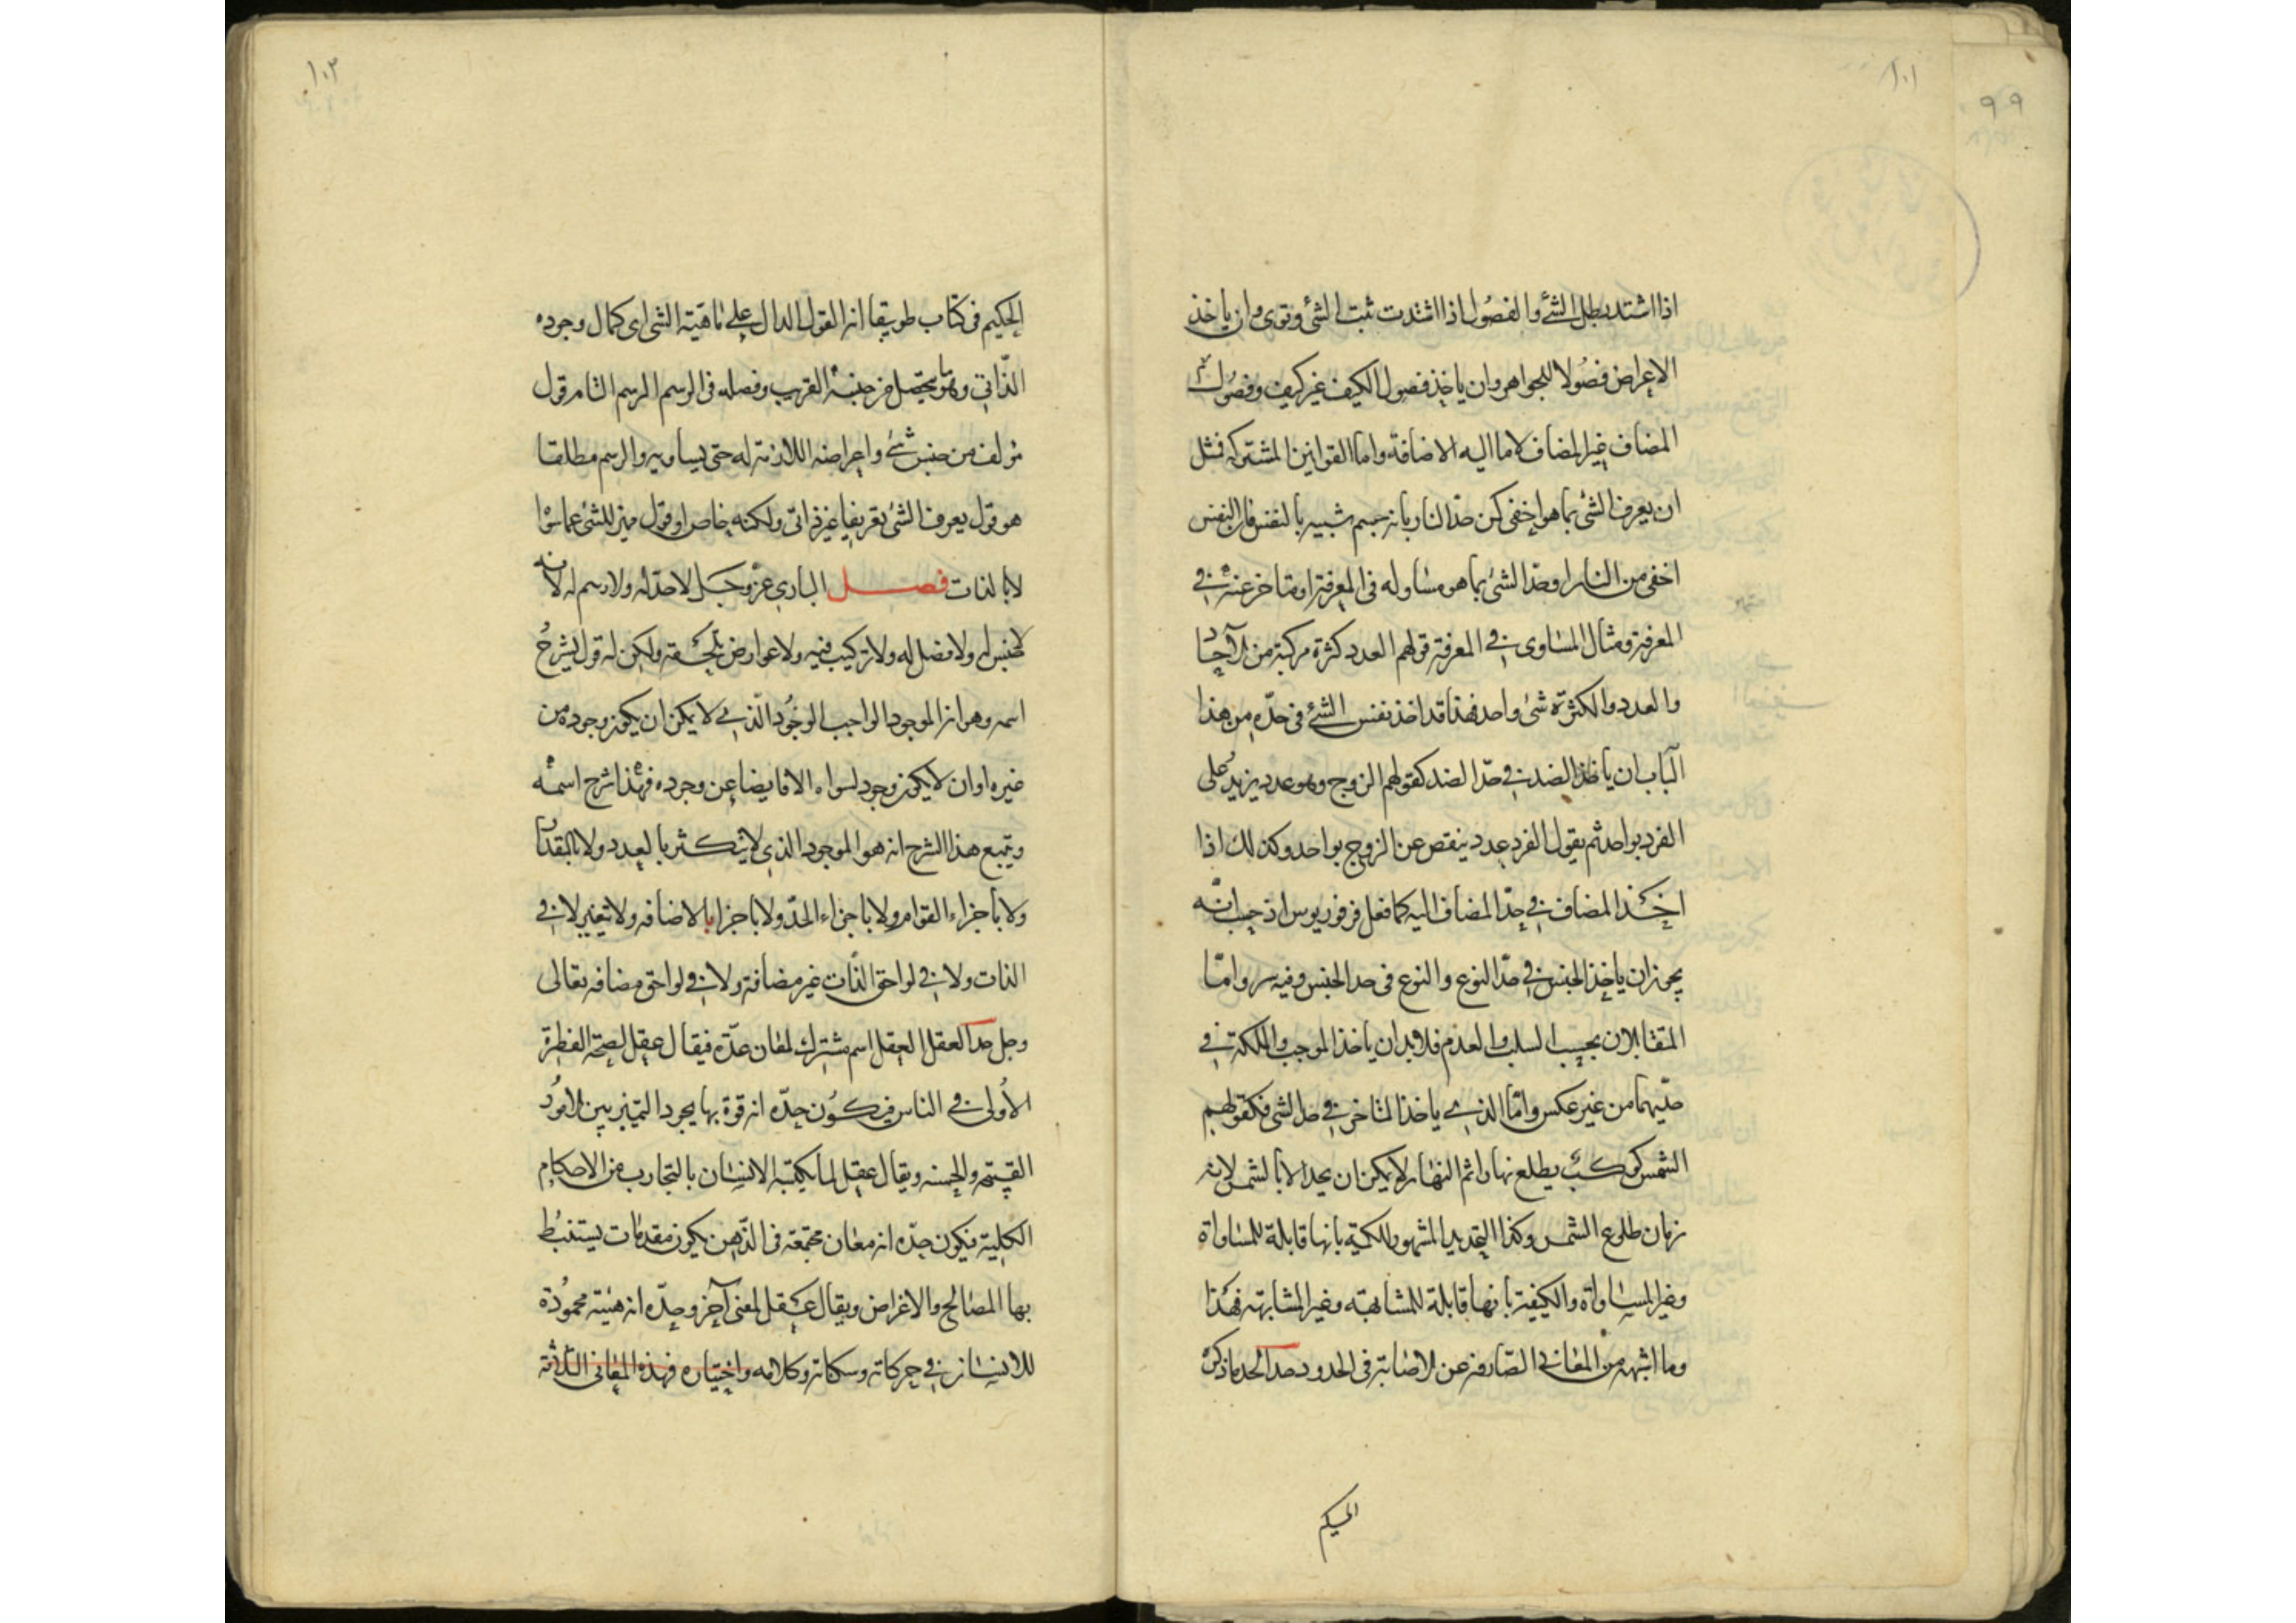 ١٠١
٩٩
اذا اشتد بطل الشئ والفصول اذا اشتدت ثبت الشئ وقوى وان ياخذ
الاعراض فصولا للجواهر وان ياخذ فصول الكيف غير كيف وفصول
المضاف غير المضاف لا ما اليه الاضافة واما القوانين المشتركه فمثل
ان يعرف الشئ بما هو اخفى كمن حدّ النار بانه جسم شبيه بالنفس فان النفس
اخفى من النار او حدّ الشئ بما هو مساو له فى المعرفة او متاخر عنه فى
المعرفة ومثال المساوى فى المعرفة قولهم العدد كثرة مركبة من الآحاد
والعدد والكثرة شئ واحد فهذا قد اخذ نفس الشئ فى حدّه ومن هذا
الباب ان ياخذ الضد فى حدّ الضد كقولهم الزوج وهو عدد يزيد على
الفرد بواحد ثم يقول الفرد عدد ينقص عن الزوج بواحد وكذلك اذا
اخذ المضاف فى حدّ المضاف اليه كما فعل فرفوريوس اذ حسب انّه
يجوز ان ياخذ الجنس فى حدّ النوع والنوع فى حد الجنس وفيه سر وامّا
المتقابلان بحسب السلب والعدم فلا بد ان ياخذ الموجب والملكة فى
حدّيهما من غير عكس وامّا الذى ياخذ المتاخر فى حد الشئ فكقولهم
الشمس كوكب يطلع نهارا ثم النهار لا يمكن ان يحد الا بالشمس لانه
زمان طلوع الشمس وكذا التحديد المشهور للكمية بانها قابلة للمساواة
وغير المساواة والكيفية بانها قابلة للمشابهة وغير المشابهة فهذا
وما اشبهه من المعانى الصارفه عن الاصابة فى الحدود حد الحد ما ذكره
الحكيم
١٠٢
الحكيم فى كتاب طوبيقا انه القول الدال على ماهية الشئ اى كمال وجوده
الذّاتى وهو ما يتحصل من جنسه القريب وفصله فى الرسم الرسم التام قول
مؤلف من جنس شئ واعراضه اللازمة له حتى يساويه والرسم مطلقا
هو قول يعرف الشئ تعريفا غير ذاتى ولكنه خاص او قول مميز للشئ عما سواه
لا بالذات فصل البارى عزّ وجل لا حدّ له ولا رسم له لانه
لا جنس له ولا فصل له ولا تركيب فيه ولا عوارض تلحقه ولكن له قول يشرح
اسمه وهو انه الموجود الواجب الوجود الّذى لا يمكن ان يكون وجوده من
غيره او ان لا يكون وجود لسواه الا فايضا عن وجوده فهذا شرح اسمه
ويتبع هذا الشرح انه هو الموجود الذى لا يتكثر بالعدد ولا بالمقدار
ولا باجزاء القوام ولا باجزاء الحدّ ولا باجزا بالاضافه ولا تغير لا فى
الذات ولا فى لواحق الذّات غير مضافة ولا فى لواحق مضافه تعالى
وجل حد العقل العقل اسم مشترك لمعان عدّة فيقال عقل لصحة الفطرة
الاُولى فى الناس فيكون حدّه انه قوة بها يجود التميز بين الامور
القبيحة والحسنه ويقال عقل لما يكتسبه الانسان بالتجارب من الاحكام
الكلية فيكون حدّه انه معان مجتمعة فى الذّهن يكون مقدمات يستنبط
بها المصالح والاغراض ويقال عقل لمعنى آخر وحدّه انه هيئة محمودة
للانسان فى حركاته وسكناته وكلامه واختياره فهذه المعانى الثلاثة